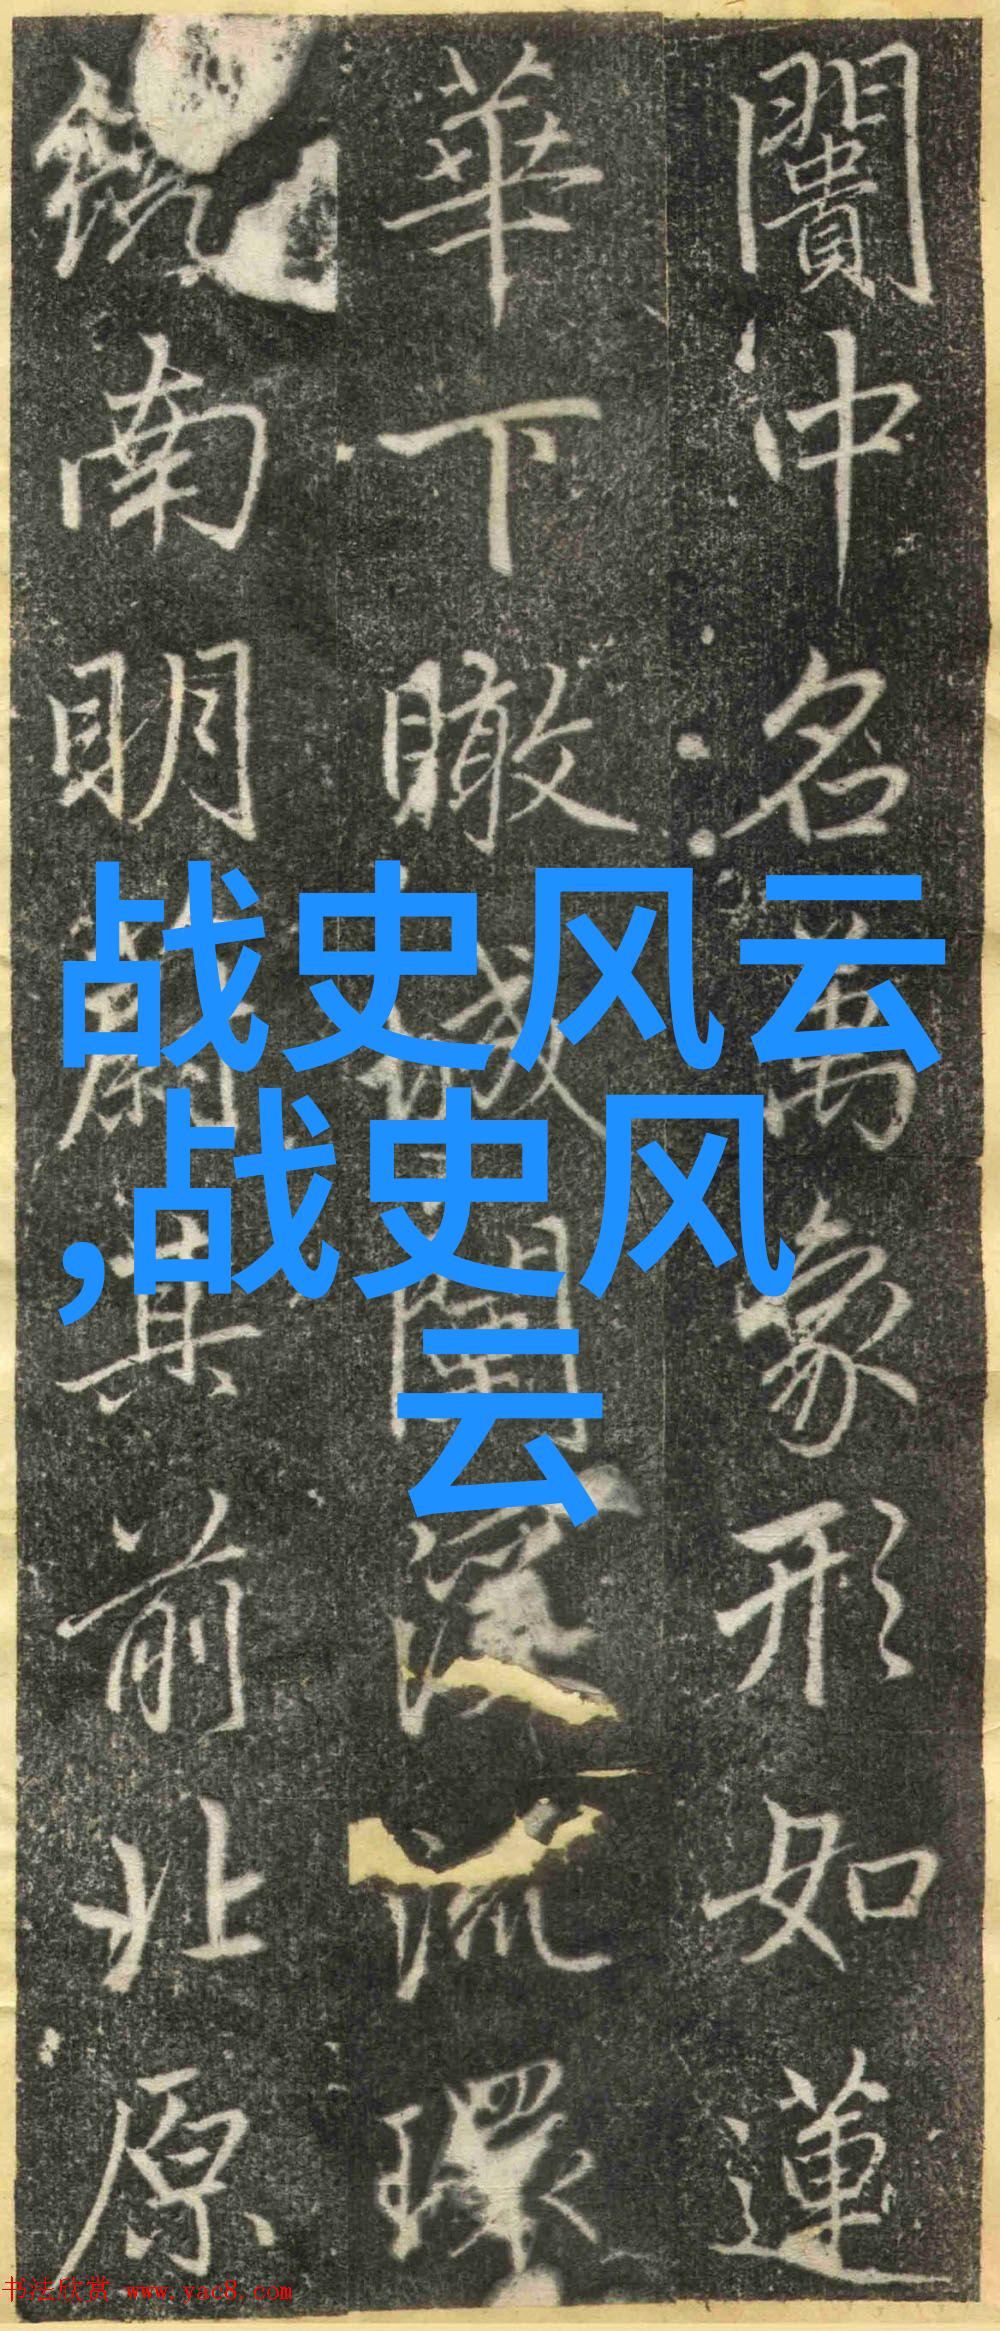 闠冲名萬象形如蓮
華下瞰城闉環
南明蔚其前北原
战史风云
,战史风
云
书法欣赏 www.yac8.com